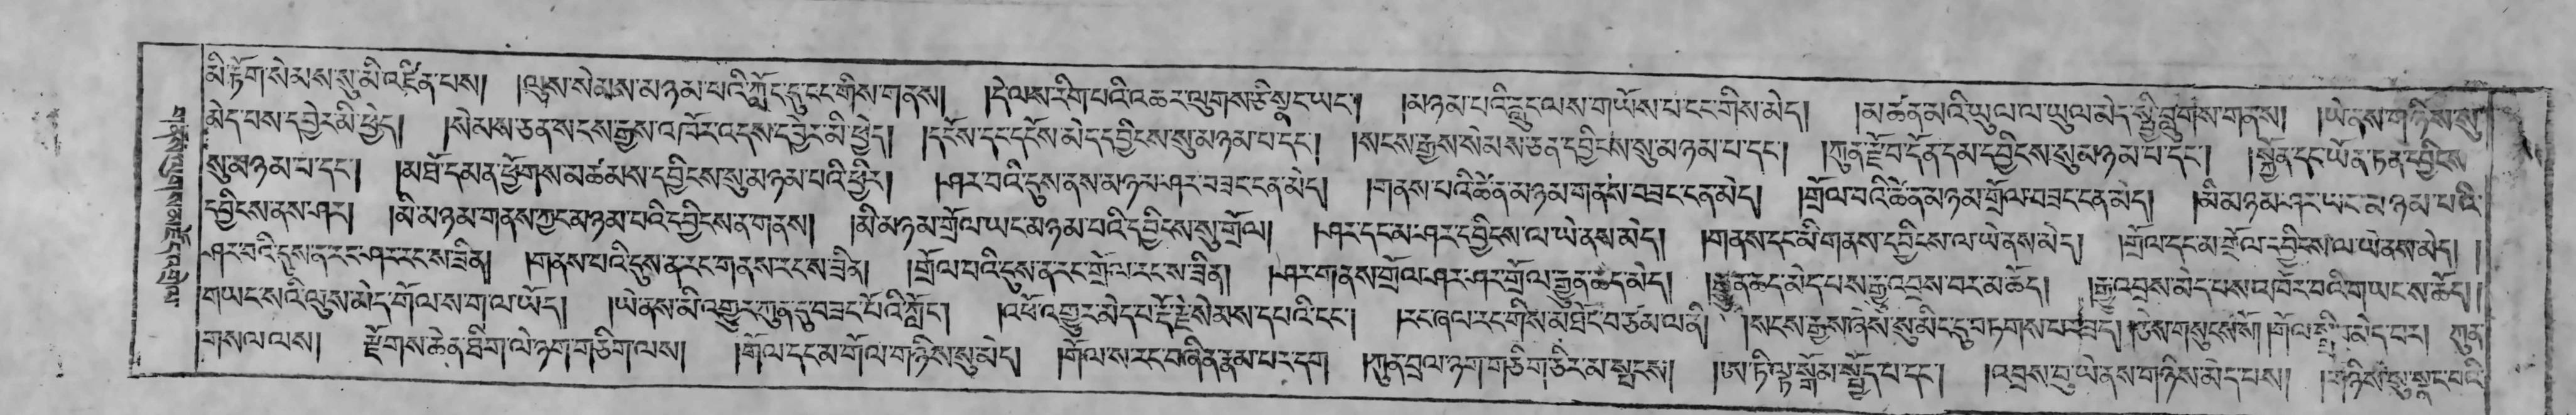 མི་རྟོག་སེམས་སུ་མི་འཛིན་པས། །ལུས་སེམས་མ་ཉམ་པའི་ཀློང་དུ་ངང་གིས་གནས། །དེ་ལས་རིག་པའི་འཆར་ལུགས་ཅི་སྣང་ཡང་། །མཉམ་པའི་ཀློང་ལས་གཡོས་པ་ངང་གིས་མེད། །མ་ཚན་མའི་ཡུལ་ལ་ཡུལ་མེད་སྤྱི་བླུགས་གནས། །ཡེ་ནས་གཉིས་སུ་
མེད་པས་དབྱེར་མི་ཕྱེད། །སེམས་ཅན་སངས་རྒྱས་འཁོར་འདས་དབྱེར་མི་ཕྱེད། །དངོས་དང་དངོས་མེད་དབྱིངས་སུ་མཉམ་པ་དང་། །སངས་རྒྱས་སེམས་ཅན་དབྱིངས་སུ་མཉམ་པ་དང་། །ཀུན་རྫོབ་དོན་དམ་དབྱིངས་སུ་མཉམ་པ་དང་། །སྐྱོན་དང་ཡོན་ཏན་དབྱིངས་
སུ་མཉམ་པ་དང་། །མཐོ་དམན་ཕྱོགས་མཚམས་དབྱིངས་སུ་མཉམ་པའི་ཕྱིར། །ཤར་བའི་དུས་ནས་མཉམ་ཤར་བཟང་ངན་མེད། །གནས་པའི་ཚེ་ན་མཉམ་གནས་བཟང་ངན་མེད། །གྲོལ་བའི་ཚེ་ན་མཉམ་གྲོལ་བཟང་ངན་མེད། །མི་མཉམ་ཤར་ཡང་མཉམ་པའི་
དབྱིངས་ནས་ཤར། །མི་མཉམ་གནས་ཀྱང་མཉམ་པའི་དབྱིངས་ན་གནས། །མི་མཉམ་གྲོལ་ཡང་མཉམ་པའི་དབྱིངས་སུ་གྲོལ། །ཤར་དང་མ་ཤར་དབྱིངས་ལ་ཡེ་ནས་མེད། །གནས་དང་མི་གནས་དབྱིངས་ལ་ཡེ་ནས་མེད། །གྲོལ་དང་མ་གྲོལ་དབྱིངས་ལ་ཡེ་ནས་མེད། །
ཤར་བའི་དུས་ན་རང་ཤར་རང་ས་ཟིན། །གནས་པའི་དུས་ན་རང་གནས་རང་ས་ཟིན། །གྲོལ་བའི་དུས་ན་རང་གྲོལ་རང་ས་ཟིན། །ཤར་གནས་གྲོལ་ཤར་ཤར་གྲོལ་རྒྱུན་ཆད་མེད། །རྒྱུན་ཆད་མེད་པས་རྒྱུ་འབྲས་བར་མ་ཆོད། །རྒྱུ་འབྲས་མེད་པས་འཁོར་བའི་གཡང་ས་ཆོད། །
གཡང་སའི་ལུས་མེད་གོལ་ས་ག་ལ་ཡོད། །ཡེ་ནས་མི་འགྱུར་ཀུན་ཏུ་བཟང་པོའི་ཀློང་། །འཕོ་འགྱུར་མེད་པ་རྡོ་རྗེ་སེམས་དཔའི་ངང་། །རང་ཞལ་རང་གིས་མཐོང་བ་ཙམ་ལ་ནི། །སངས་རྒྱས་ཞེས་སུ་མིང་དུ་བཏགས་པ་བྲད། །ཅེས་གསུངས་སོ། །གོལ་སྒྲིབ་མེད་པར་ ཀུན་
གསལ་ལས། རྫོགས་ཆེན་ཐིག་ལེ་ཉག་གཅིག་ལས། །གོལ་དང་མ་གོལ་གཉིས་སུ་མེད། །གོལ་ས་རང་བཞིན་རྣམ་པར་དག །ཀུན་བྲལ་ཉག་གཅིག་ཅིར་མ་སྤངས། །ཨ་ཏི་ལྟ་སྒོམ་སྤྱོད་པ་དང་། །འབྲས་བུ་ཡེ་ནས་གཉིས་མེད་པས། །གཉིས་སུ་སྣང་བའི་